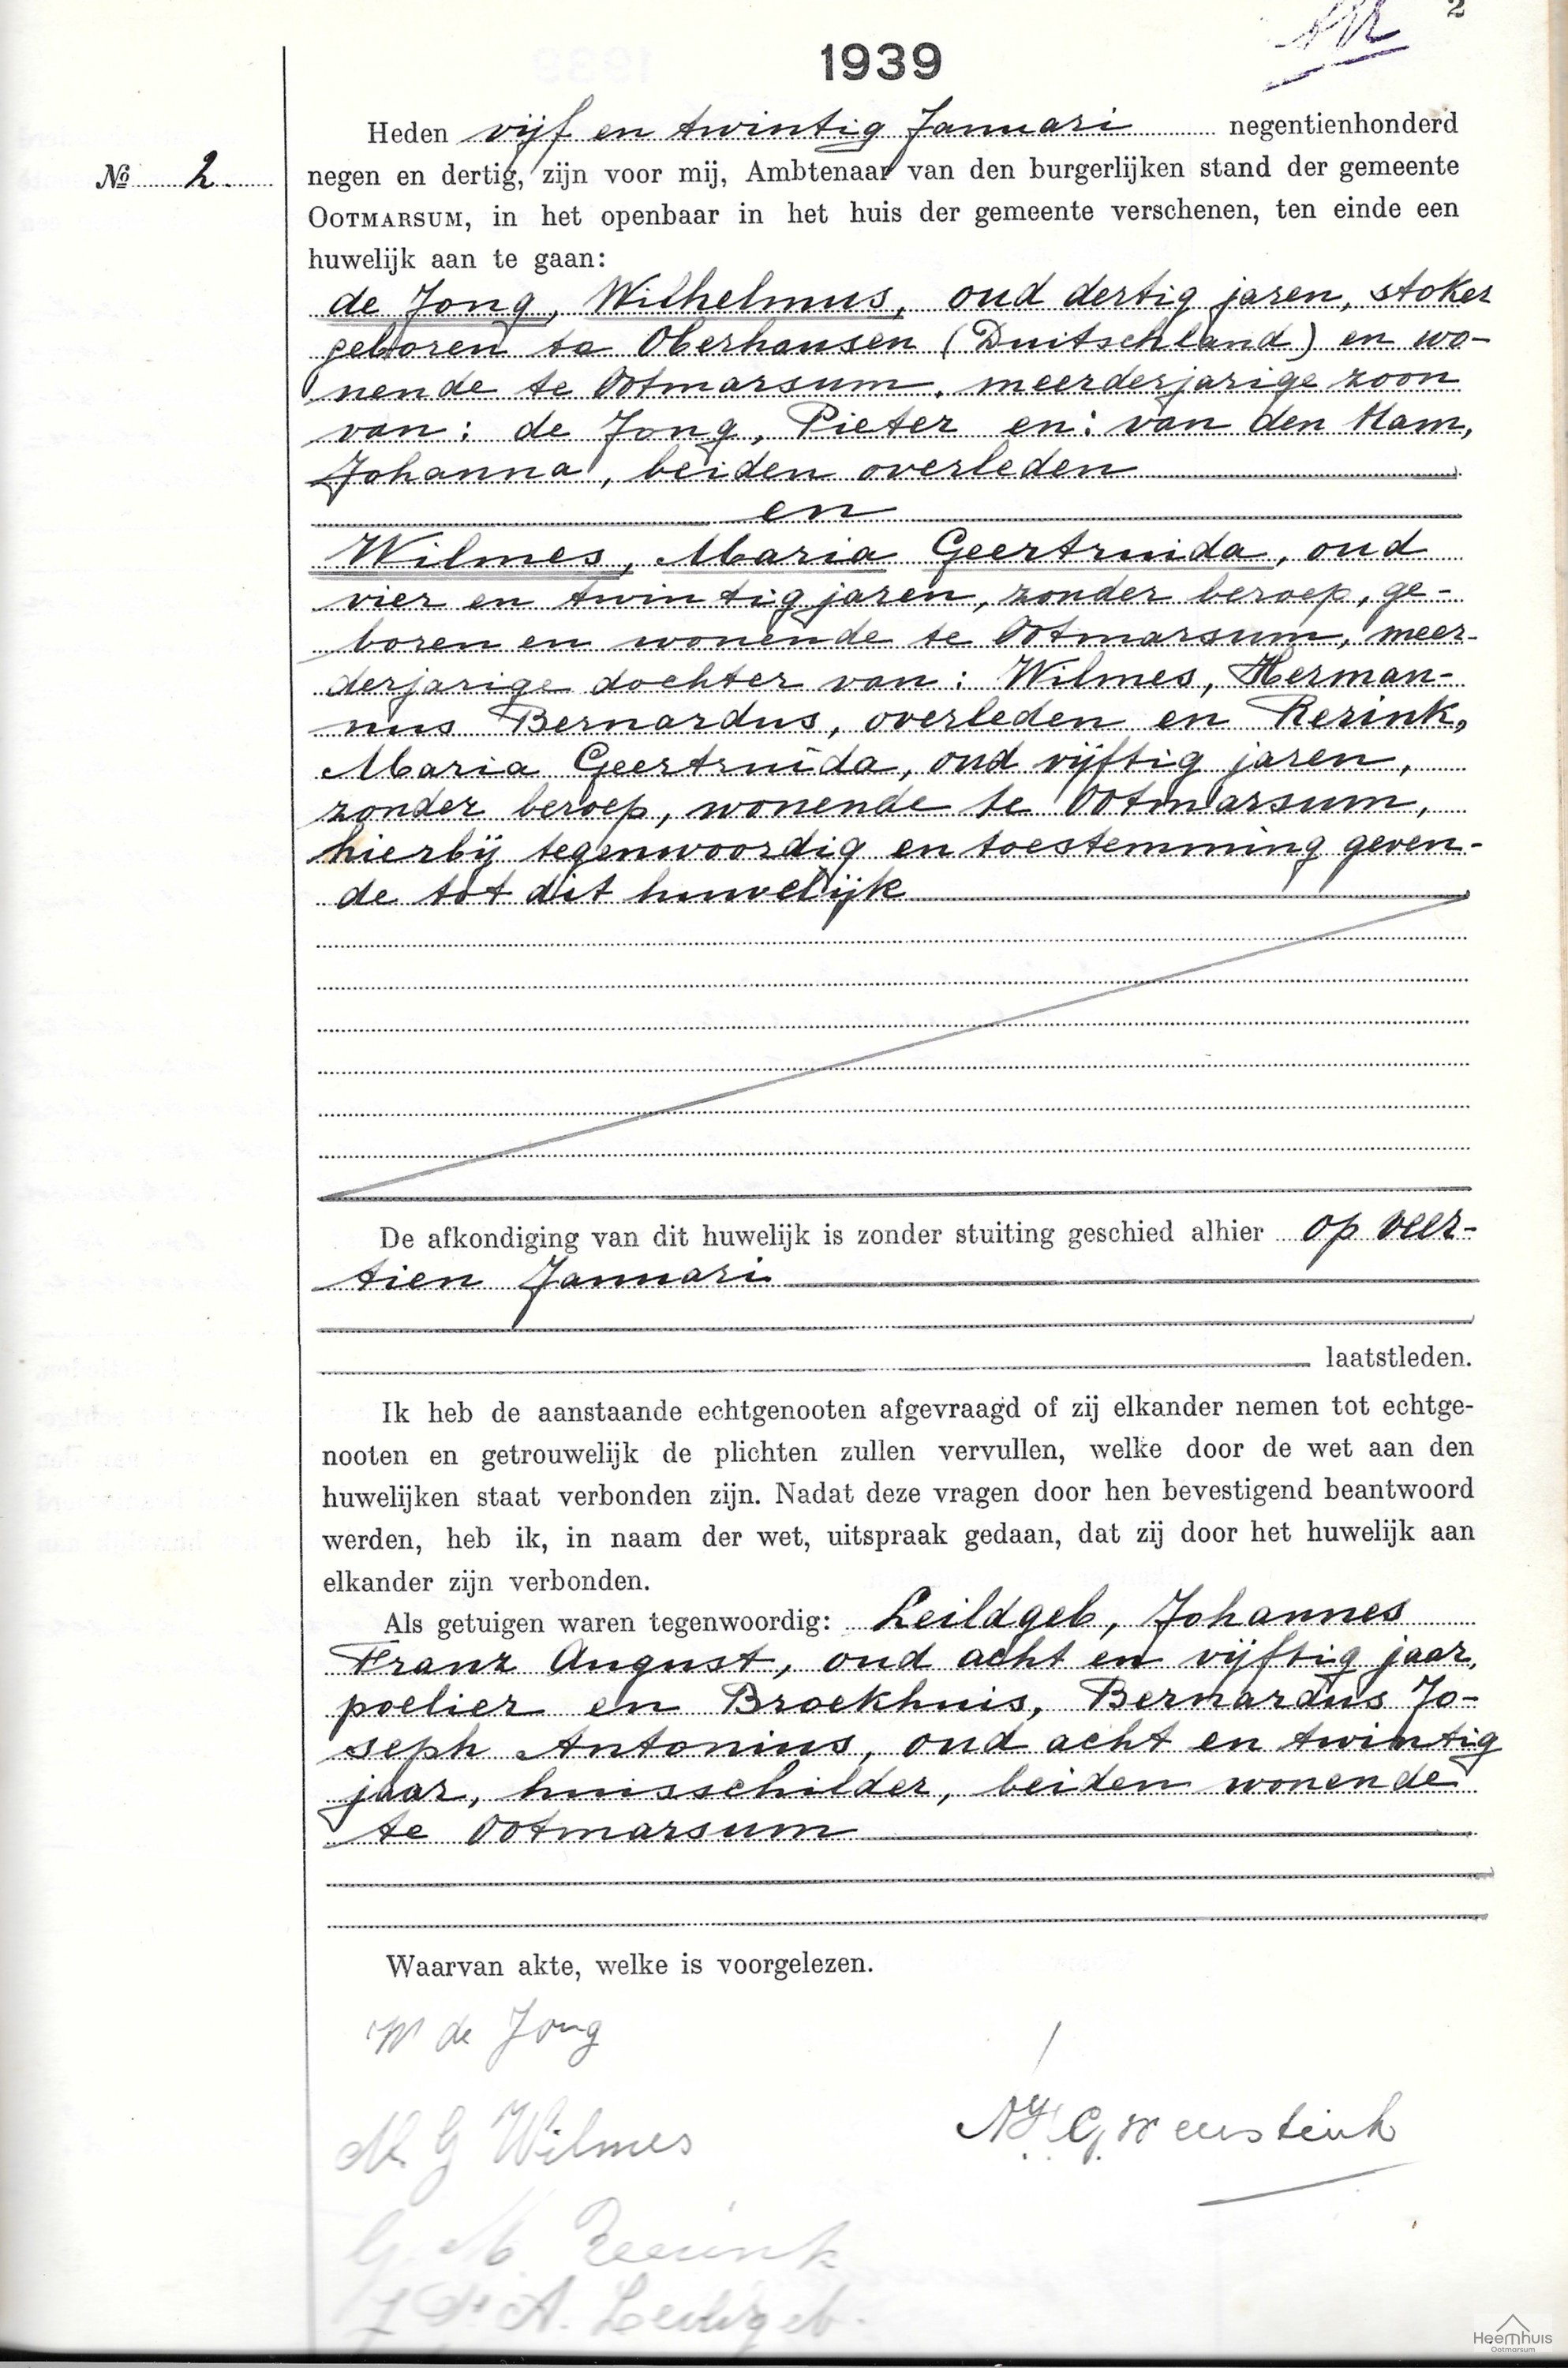 2
1939
Heden vijf en twintig Januari negentienhonderd
No 2. negen en dertig, zijn voor mij, Ambtenaar van den burgerlijken stand der gemeente
OOTMARSUM, in het openbaar in het huis der gemeente verschenen, ten einde een
huwelijk aan te gaan:
de Jong, Wilhelmus, oud dertig jaren, stoker
geboren te Oberhausen (Duitschland) en wo-
nende te Ootmarsum, meerderjarige zoon
van: de Jong, Pieter en: van den Ham,
Johanna, beiden overleden
en
Wilmes, Maria Geertruida, oud
vier en twintig jaren, zonder beroep, ge-
boren en wonende te Ootmarsum, meer-
derjarige dochter van: Wilmes, Herman-
nus Bernardus, overleden en Rerink,
Maria Geertruida, oud vijftig jaren,
zonder beroep, wonende te Ootmarsum,
hierbij tegenwoordig en toestemming geven-
de tot dit huwelijk
De afkondiging van dit huwelijk is zonder stuiting geschied alhier op veer-
tien Januari
laatstleden.
Ik heb de aanstaande echtgenooten afgevraagd of zij elkander nemen tot echtge-
nooten en getrouwelijk de plichten zullen vervullen, welke door de wet aan den
huwelijken staat verbonden zijn. Nadat deze vragen door hen bevestigend beantwoord
werden, heb ik, in naam der wet, uitspraak gedaan, dat zij door het huwelijk aan
elkander zijn verbonden.
Als getuigen waren tegenwoordig: Leildgeb, Johannes
Franz August, oud acht en vijftig jaar,
poelier en Broekhuis, Bernardus Jo-
seph Antonius, oud acht en twintig
jaar, huisschilder, beiden wonende
te Ootmarsum
Waarvan akte, welke is voorgelezen.
W de Jong
M. G Wilmes
G M Reerink
Heemhuis
Ootmarsum